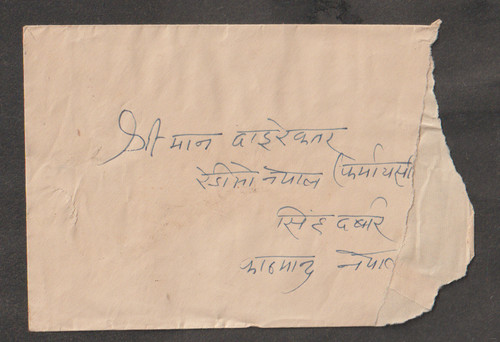 श्रीमान डाइरेक्तर
रेडीओ नेपाल (फर्मायसी
सिंह दर्बार
काठमाडु नेपाल